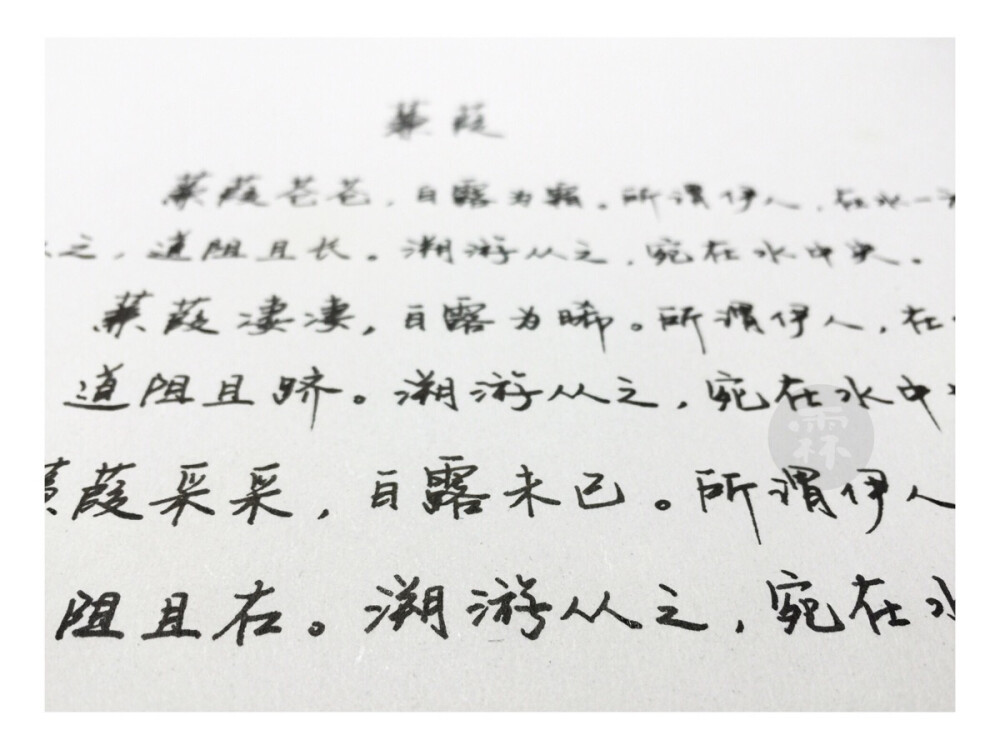 蒹葭
蒹葭苍苍，白露为霜。所谓伊人，在水一
之，道阻且长。溯游从之，宛在水中央。
蒹葭凄凄，白露为晞。所谓伊人，在
道阻且跻。溯游从之，宛在水中
蒹葭采采，白露未已。所谓伊人
阻且右。溯游从之，宛在水
霖